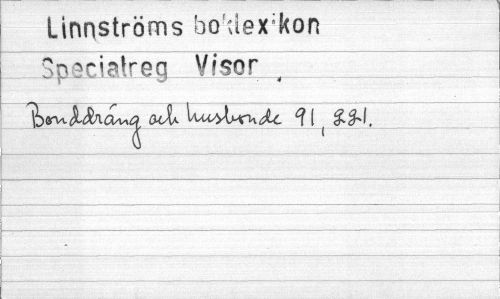 Linnströms boklexikon
Specialreg Visor.
Bonddräng och husbonde 91, 221.